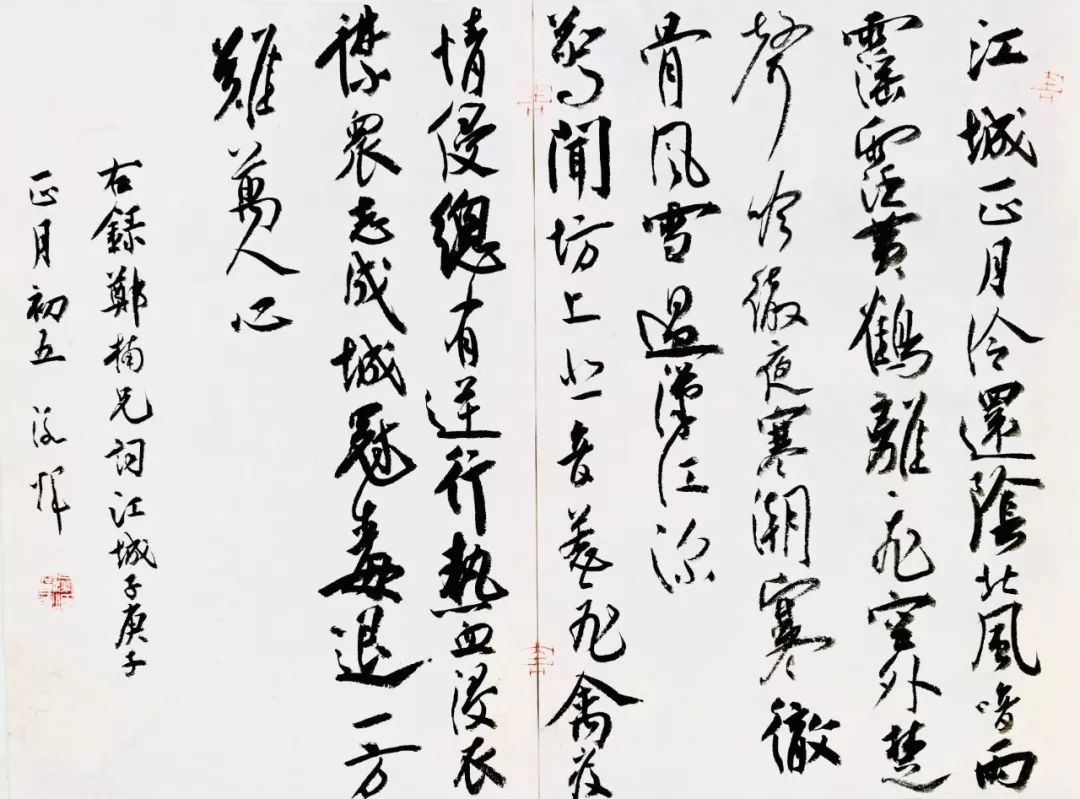 江城正月冷還陰北風喑雨
霪霪黄鶴離飛空外楚
聲吟徹夜寒潮寒徹
骨風雪過漢江深
驚聞坊上悲音蔓飛禽疫
情侵總有逆行熱血浸衣
襟衆志成城冠毒退一方
難萬人心
右錄鄭楠兄詞江城子庚子
正月初五